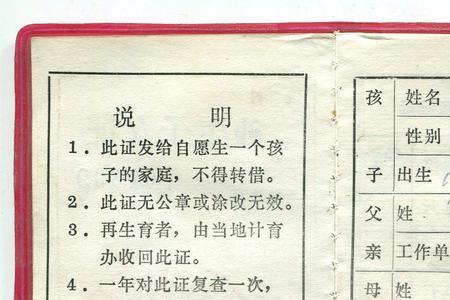 说 明
1．此证发给自愿生一个孩
子的家庭，不得转借。
2．此证无公章或涂改无效。
3．再生育者，由当地计育
办收回此证。
4．一年对此证复查一次，
孩 姓名
性别
子 出生
父 姓
亲 工作单
母 姓